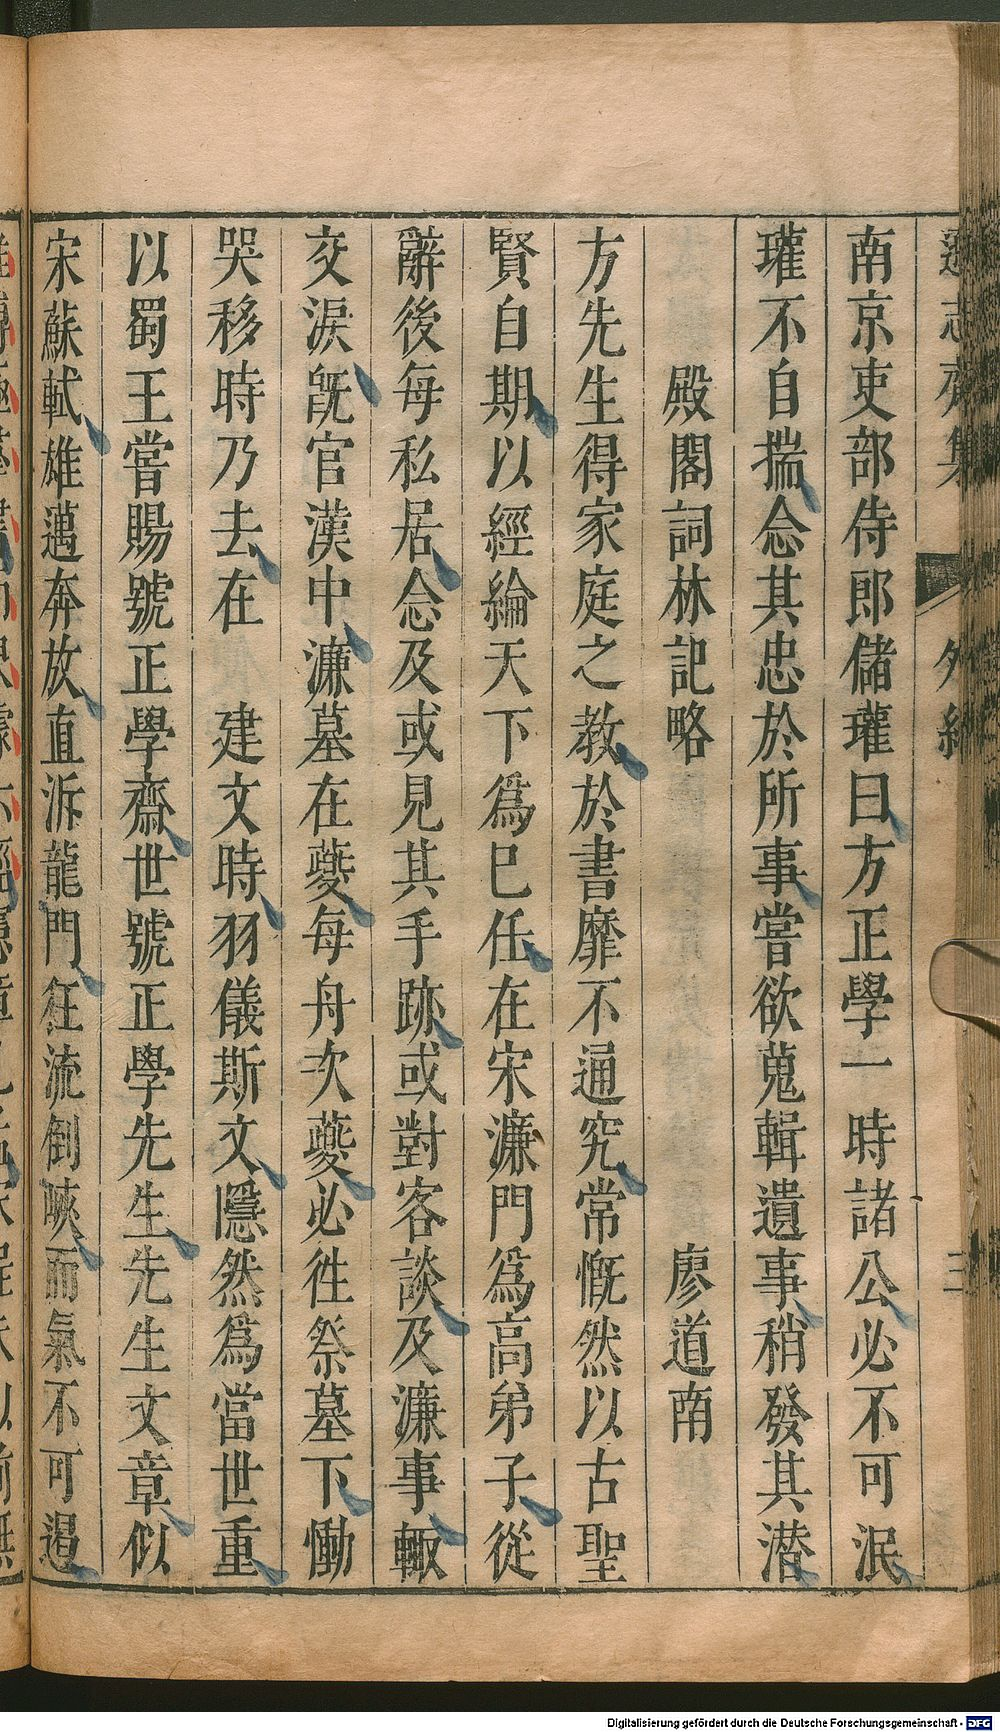 遜志齋集
外紀
三
南京吏部侍郎儲瓘曰方正學一時諸公必不可泯
瓘不自揣念其忠於所事嘗欲蒐輯遺事稍發其潜
殿閣詞林記略 廖道南
方先生得家庭之教於書靡不通究常慨然以古聖
賢自期以經綸天下爲巳任在宋濂門爲高弟子從
辭後每私居念及或見其手跡或對客談及濂事輙
交淚旣官漢中濂墓在夔每舟次夔必徃祭墓下慟
哭移時乃去在 建文時羽儀斯文隱然爲當世重
以蜀王嘗賜號正學齋世號正學先生先生文章似
宋蘇軾雄邁奔放直泝龍門狂流倒峽而氣不可遏
Digitalisierung gefördert durch die Deutsche Forschungsgemeinschaft - DFG